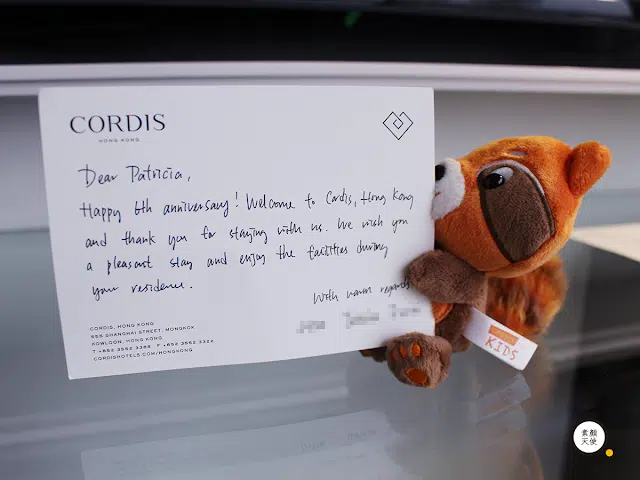 CORDIS
HONG KONG
Dear Patricia,
Happy 6th anniversary! Welcome to Cordis, Hong Kong
and thank you for staying with us. We wish you
a pleasant stay and enjoy the facilities during
your residence.
With warm regards
CORDIS, HONG KONG
555 SHANGHAI STREET, MONGKOK
KOWLOON, HONG KONG
T +852 3552 3388 F +852 3552 3322
CORDISHOTELS.COM/HONGKONG
KIDS
素顏
天使